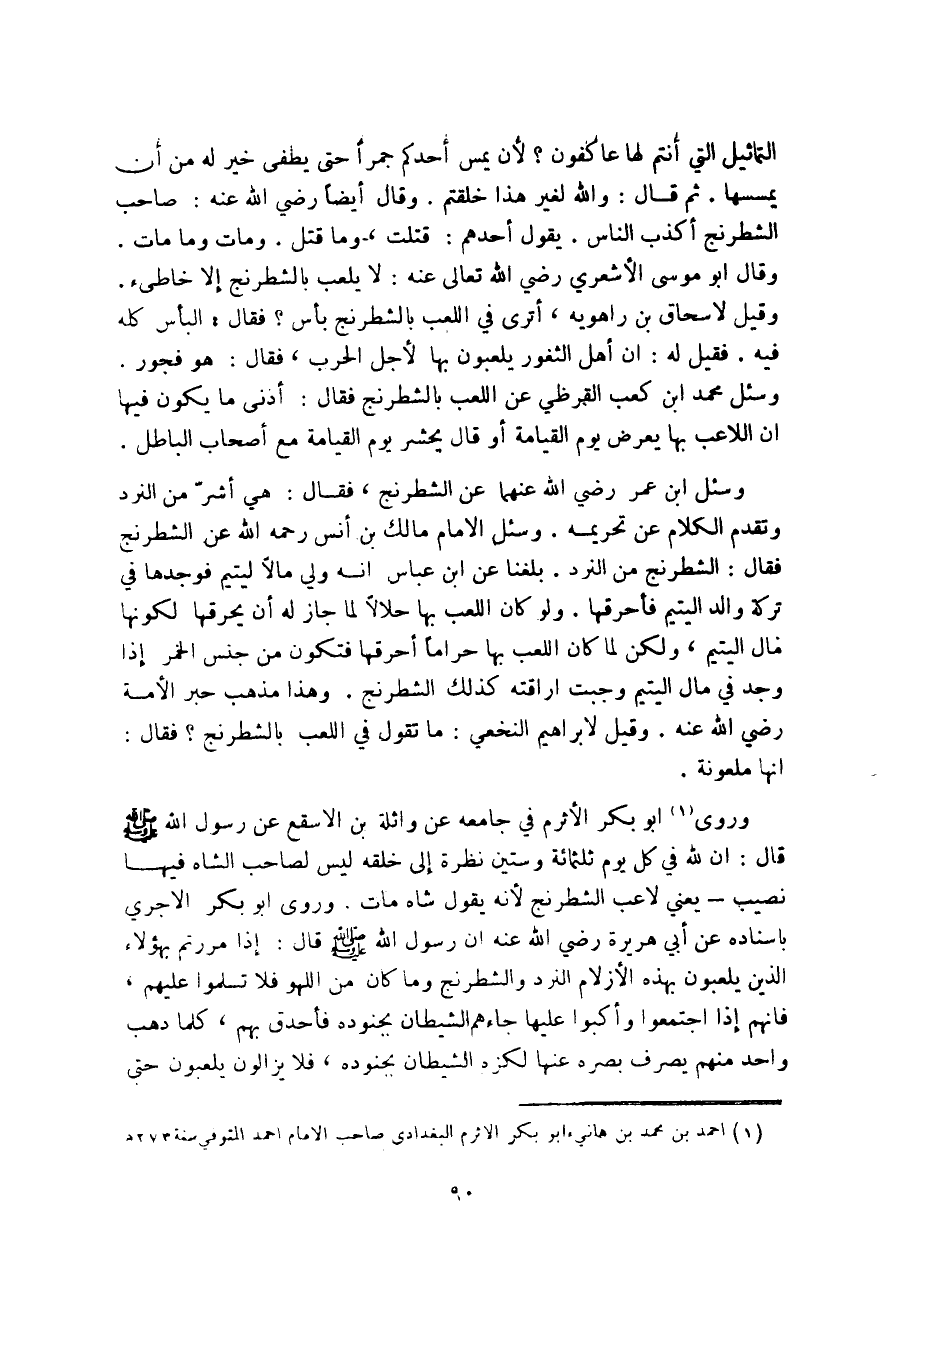 التماثيل التي أنتم لها عاكفون ؟ لأن يمس أحدكم جمراً حتى يطفى خير له من أن
يمسها . ثم قال : والله لغير هذا خلقتم . وقال أيضاً رضي الله عنه : صاحب
الشطرنج أكذب الناس . يقول أحدهم : قتلت ، وما قتل . ومات وما مات .
وقال ابو موسى الأشعري رضي الله تعالى عنه : لا يلعب بالشطرنج إلا خاطىء .
وقيل لاسحاق بن راهويه ، أترى في اللعب بالشطرنج بأس ؟ فقال : البأس كله
فيه . فقيل له : ان أهل الثغور يلعبون بها لأجل الحرب ، فقال : هو فجور .
وسئل محمد ابن كعب القرظي عن اللعب بالشطرنج فقال : أدنى ما يكون فيها
ان اللاعب بها يعرض يوم القيامة أو قال يحشر يوم القيامة مع أصحاب الباطل .
وسئل ابن عمر رضي الله عنهما عن الشطرنج ، فقال : هي أشرّ من النرد
وتقدم الكلام عن تحريمه . وسئل الامام مالك بن أنس رحمه الله عن الشطرنج
فقال : الشطرنج من النرد . بلغنا عن ابن عباس انه ولي مالاً ليتيم فوجدها في
تركة والد اليتيم فأحرقها . ولو كان اللعب بها حلالاً لما جاز له أن يحرقها لكونها
مال اليتيم ، ولكن لما كان اللعب بها حراماً أحرقها فتكون من جنس الخمر إذا
وجد في مال اليتيم وجبت اراقته كذلك الشطرنج . وهذا مذهب حبر الأمة
رضي الله عنه . وقيل لابراهيم النخعي : ما تقول في اللعب بالشطرنج ؟ فقال :
انها ملعونة .
وروى(١) ابو بكر الأثرم في جامعه عن واثلة بن الاسقع عن رسول الله ﷺ
قال : ان لله في كل يوم ثلثمائة وستين نظرة إلى خلقه ليس لصاحب الشاه فيها
نصيب – يعني لاعب الشطرنج لأنه يقول شاه مات . وروى ابو بكر الاجري
باسناده عن أبي هريرة رضي الله عنه ان رسول الله ﷺ قال : إذا مررتم بهؤلاء
الذين يلعبون بهذه الأزلام النرد والشطرنج وما كان من اللهو فلا تسلموا عليهم ،
فانهم إذا اجتمعوا وأكبوا عليها جاءهم الشيطان بجنوده فأحدق بهم ، كلما دهب
واحد منهم يصرف بصره عنها لكزه الشيطان بجنوده ، فلا يزالون يلعبون حتى
(١) احمد بن محمد بن هانيء ابو بكر الاثرم البغدادي صاحب الامام احمد المتوفي سنة ٢٧٣ه
٩٠